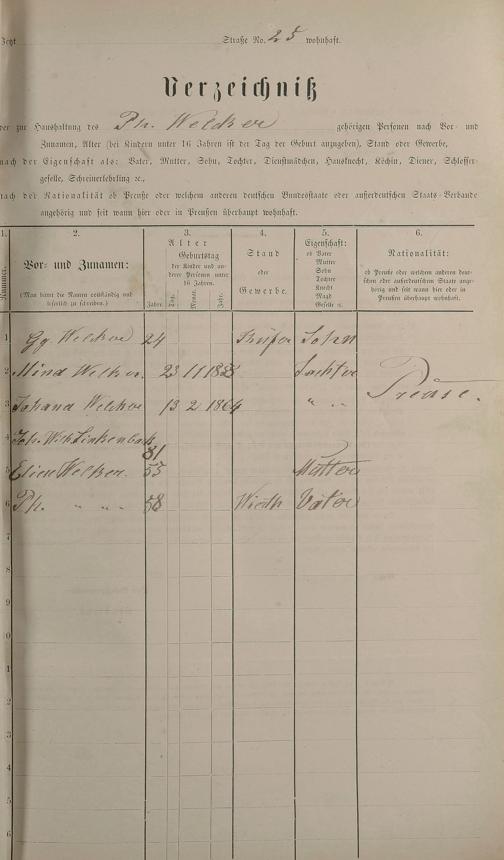 Jetzt Straße No. 25 wohnhaft.
Verzeichniß
der zur Haushaltung des Ph. Welcker gehörigen Personen nach Vor- und
Zunamen, Alter (bei Kindern unter 16 Jahren ist der Tag der Geburt anzugeben), Stand oder Gewerbe,
nach der Eigenschaft als: Vater, Mutter, Sohn, Tochter, Dienstmädchen, Hausknecht, Köchin, Diener, Schlosser-
geselle, Schreinerlehrling ꝛc.,
nach der Nationalität ob Preuße oder welchem anderen deutschen Bundesstaate oder außerdeutschen Staats-Verbande
angehörig und seit wann hier oder in Preußen überhaupt wohnhaft.
1. 2. 3. 4. 5. 6.
Nummer.
Vor- und Zunamen:
(Man bittet die Namen vollständig und
leserlich zu schreiben.)
Alter
Geburtstag
der Kinder und an-
derer Personen unter
16 Jahren.
Jahre. Tag. Monat. Jahr.
Stand
oder
Gewerbe.
Eigenschaft:
ob Vater
Mutter
Sohn
Tochter
Knecht
Magd
Geselle ꝛc.
Nationalität:
ob Preuße oder welchem anderen deut-
schen oder außerdeutschen Staate ange-
hörig und seit wann hier oder in
Preußen überhaupt wohnhaft.
1 Gg Welcker 24 Küfer Sohn
2 Mina Welker. 23 11 Tochter
3 Johana Welcker 13 2 1864 " " Preuse.
4 Joh. Wilh. Linkenbach 81
5 Elise Welker. 53 Mutter
6 Ph. " " " 58 Wirth Vater
7
8
9
10
1
2
3
4
5
6